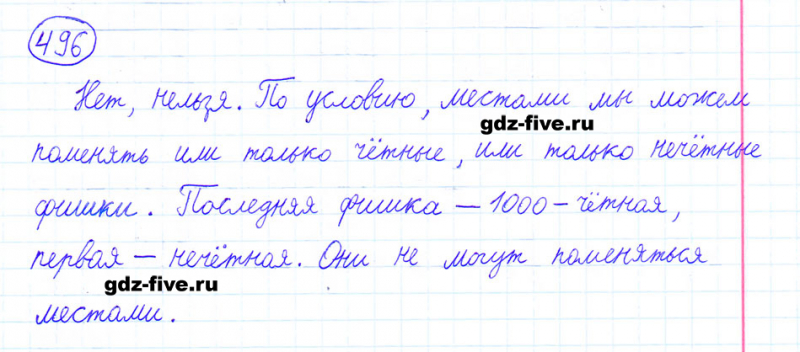 496
Нет, нельзя. По условию, местами мы можем
gdz-five.ru
поменять или только чётные, или только нечётные
фишки. Последняя фишка – 1000 – чётная,
первая – нечётная. Они не могут поменяться
gdz-five.ru
местами.